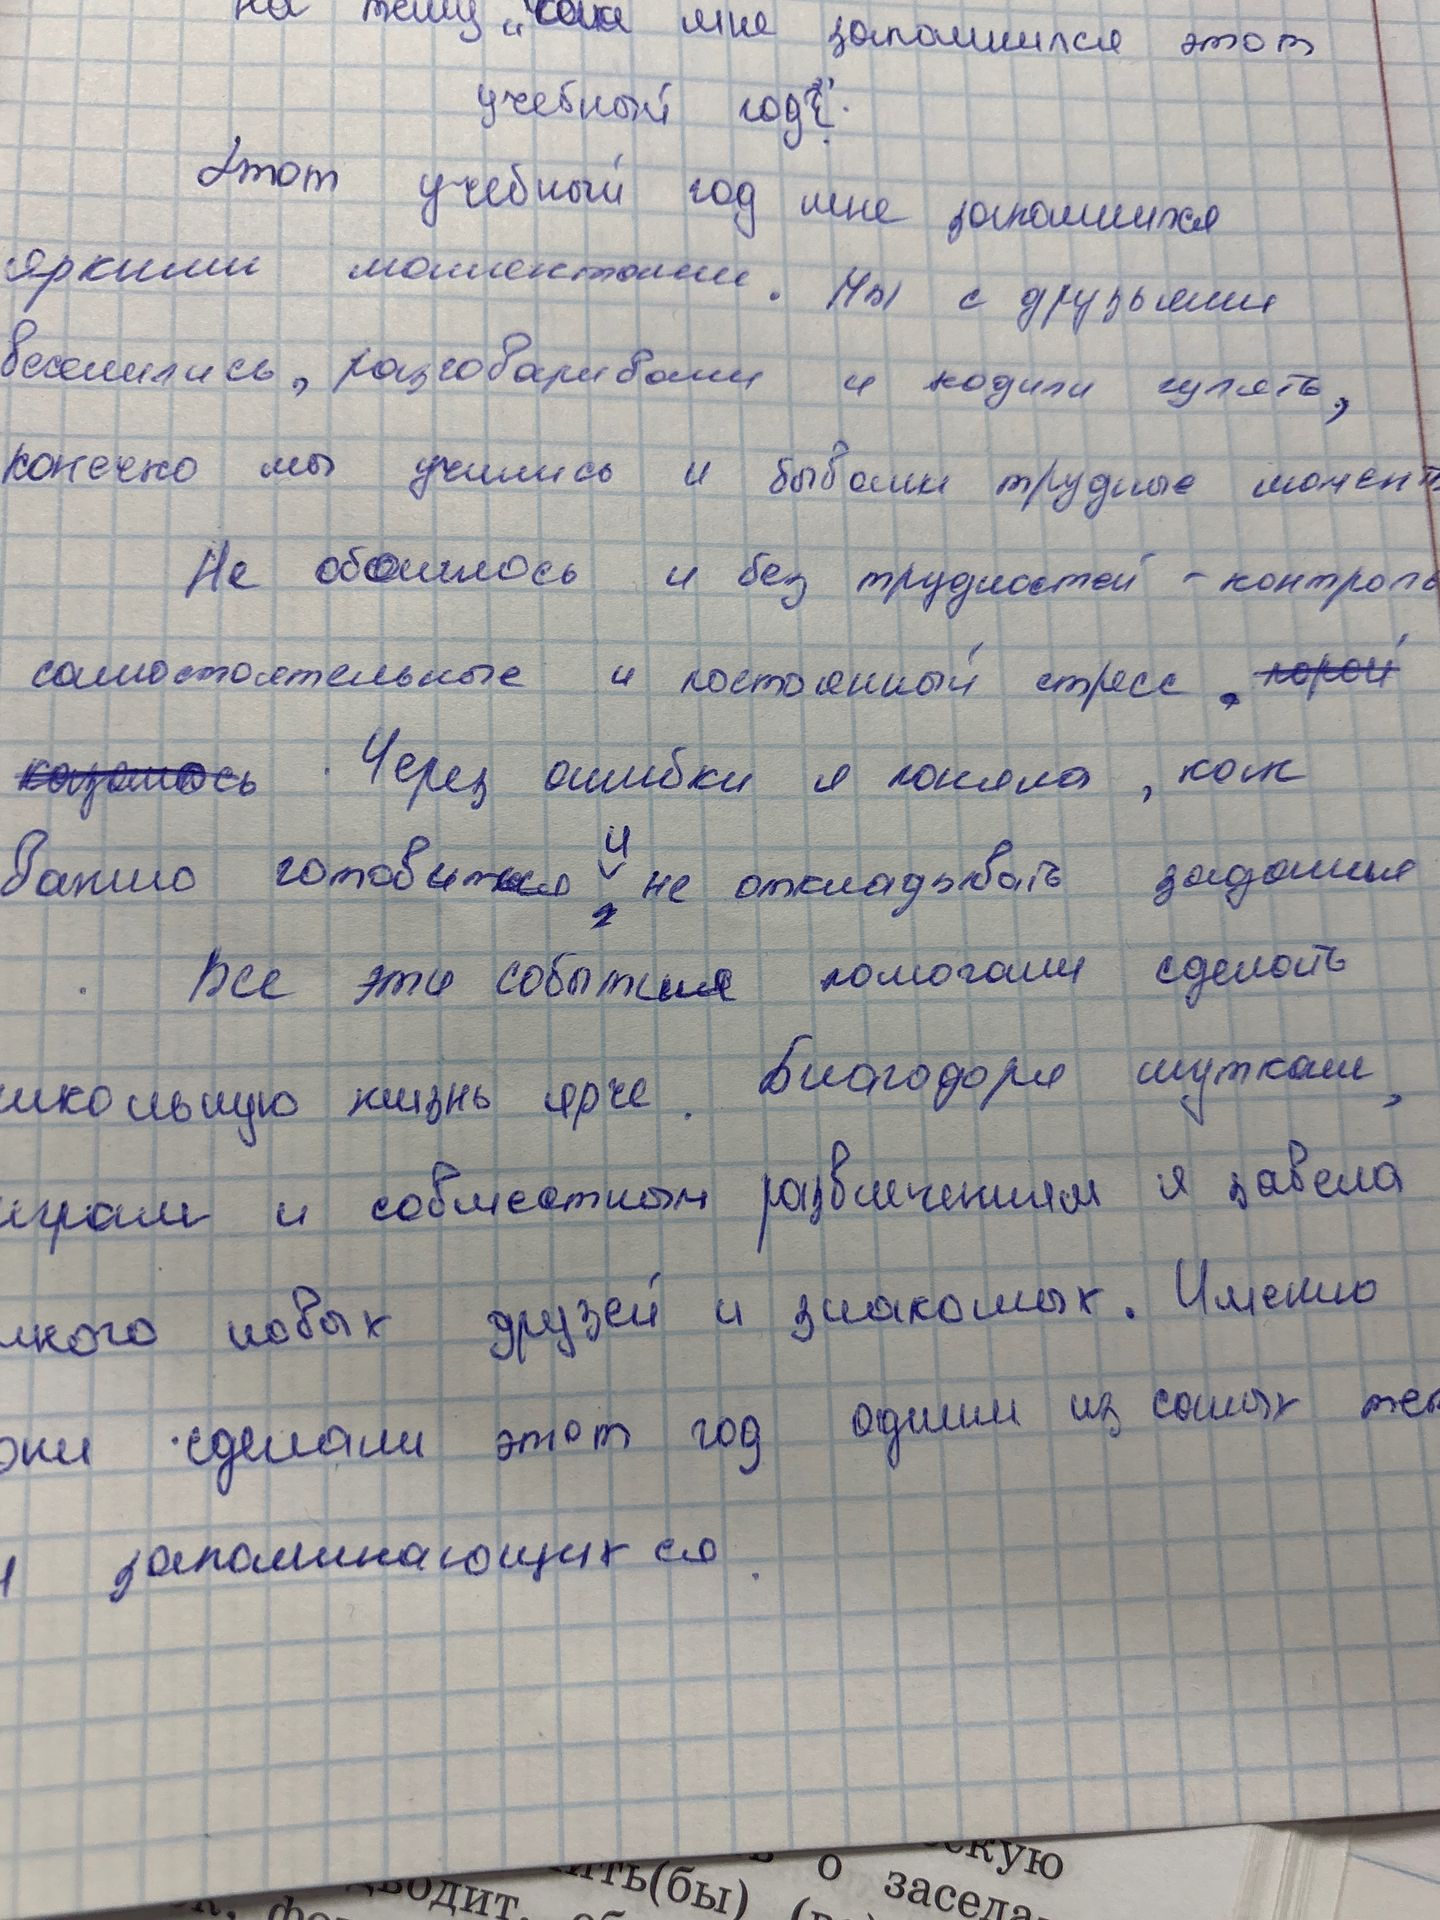 на тему „как мне запомнился этот
учебный год?".
Этот учебный год мне запомнился
яркими моментами. Мы с друзьями
веселились, разговаривали и ходили гулять,
конечно мы учились и бывали трудные момент
Не обошлось и без трудностей - контроль
самостоятельные и постоянный стресс, порой
казалось . Через ошибки я поняла, как
важно готовиться и не откладывать задания
. Все эти события помогали сделать
школьную жизнь ярче. Благодаря шуткам,
играм и совместным развлечениям я завела
много новых друзей и знакомых. Именно
они сделали этот год одним из самых
и запоминающихся.
скую
ить(бы) о заседа
дводит.